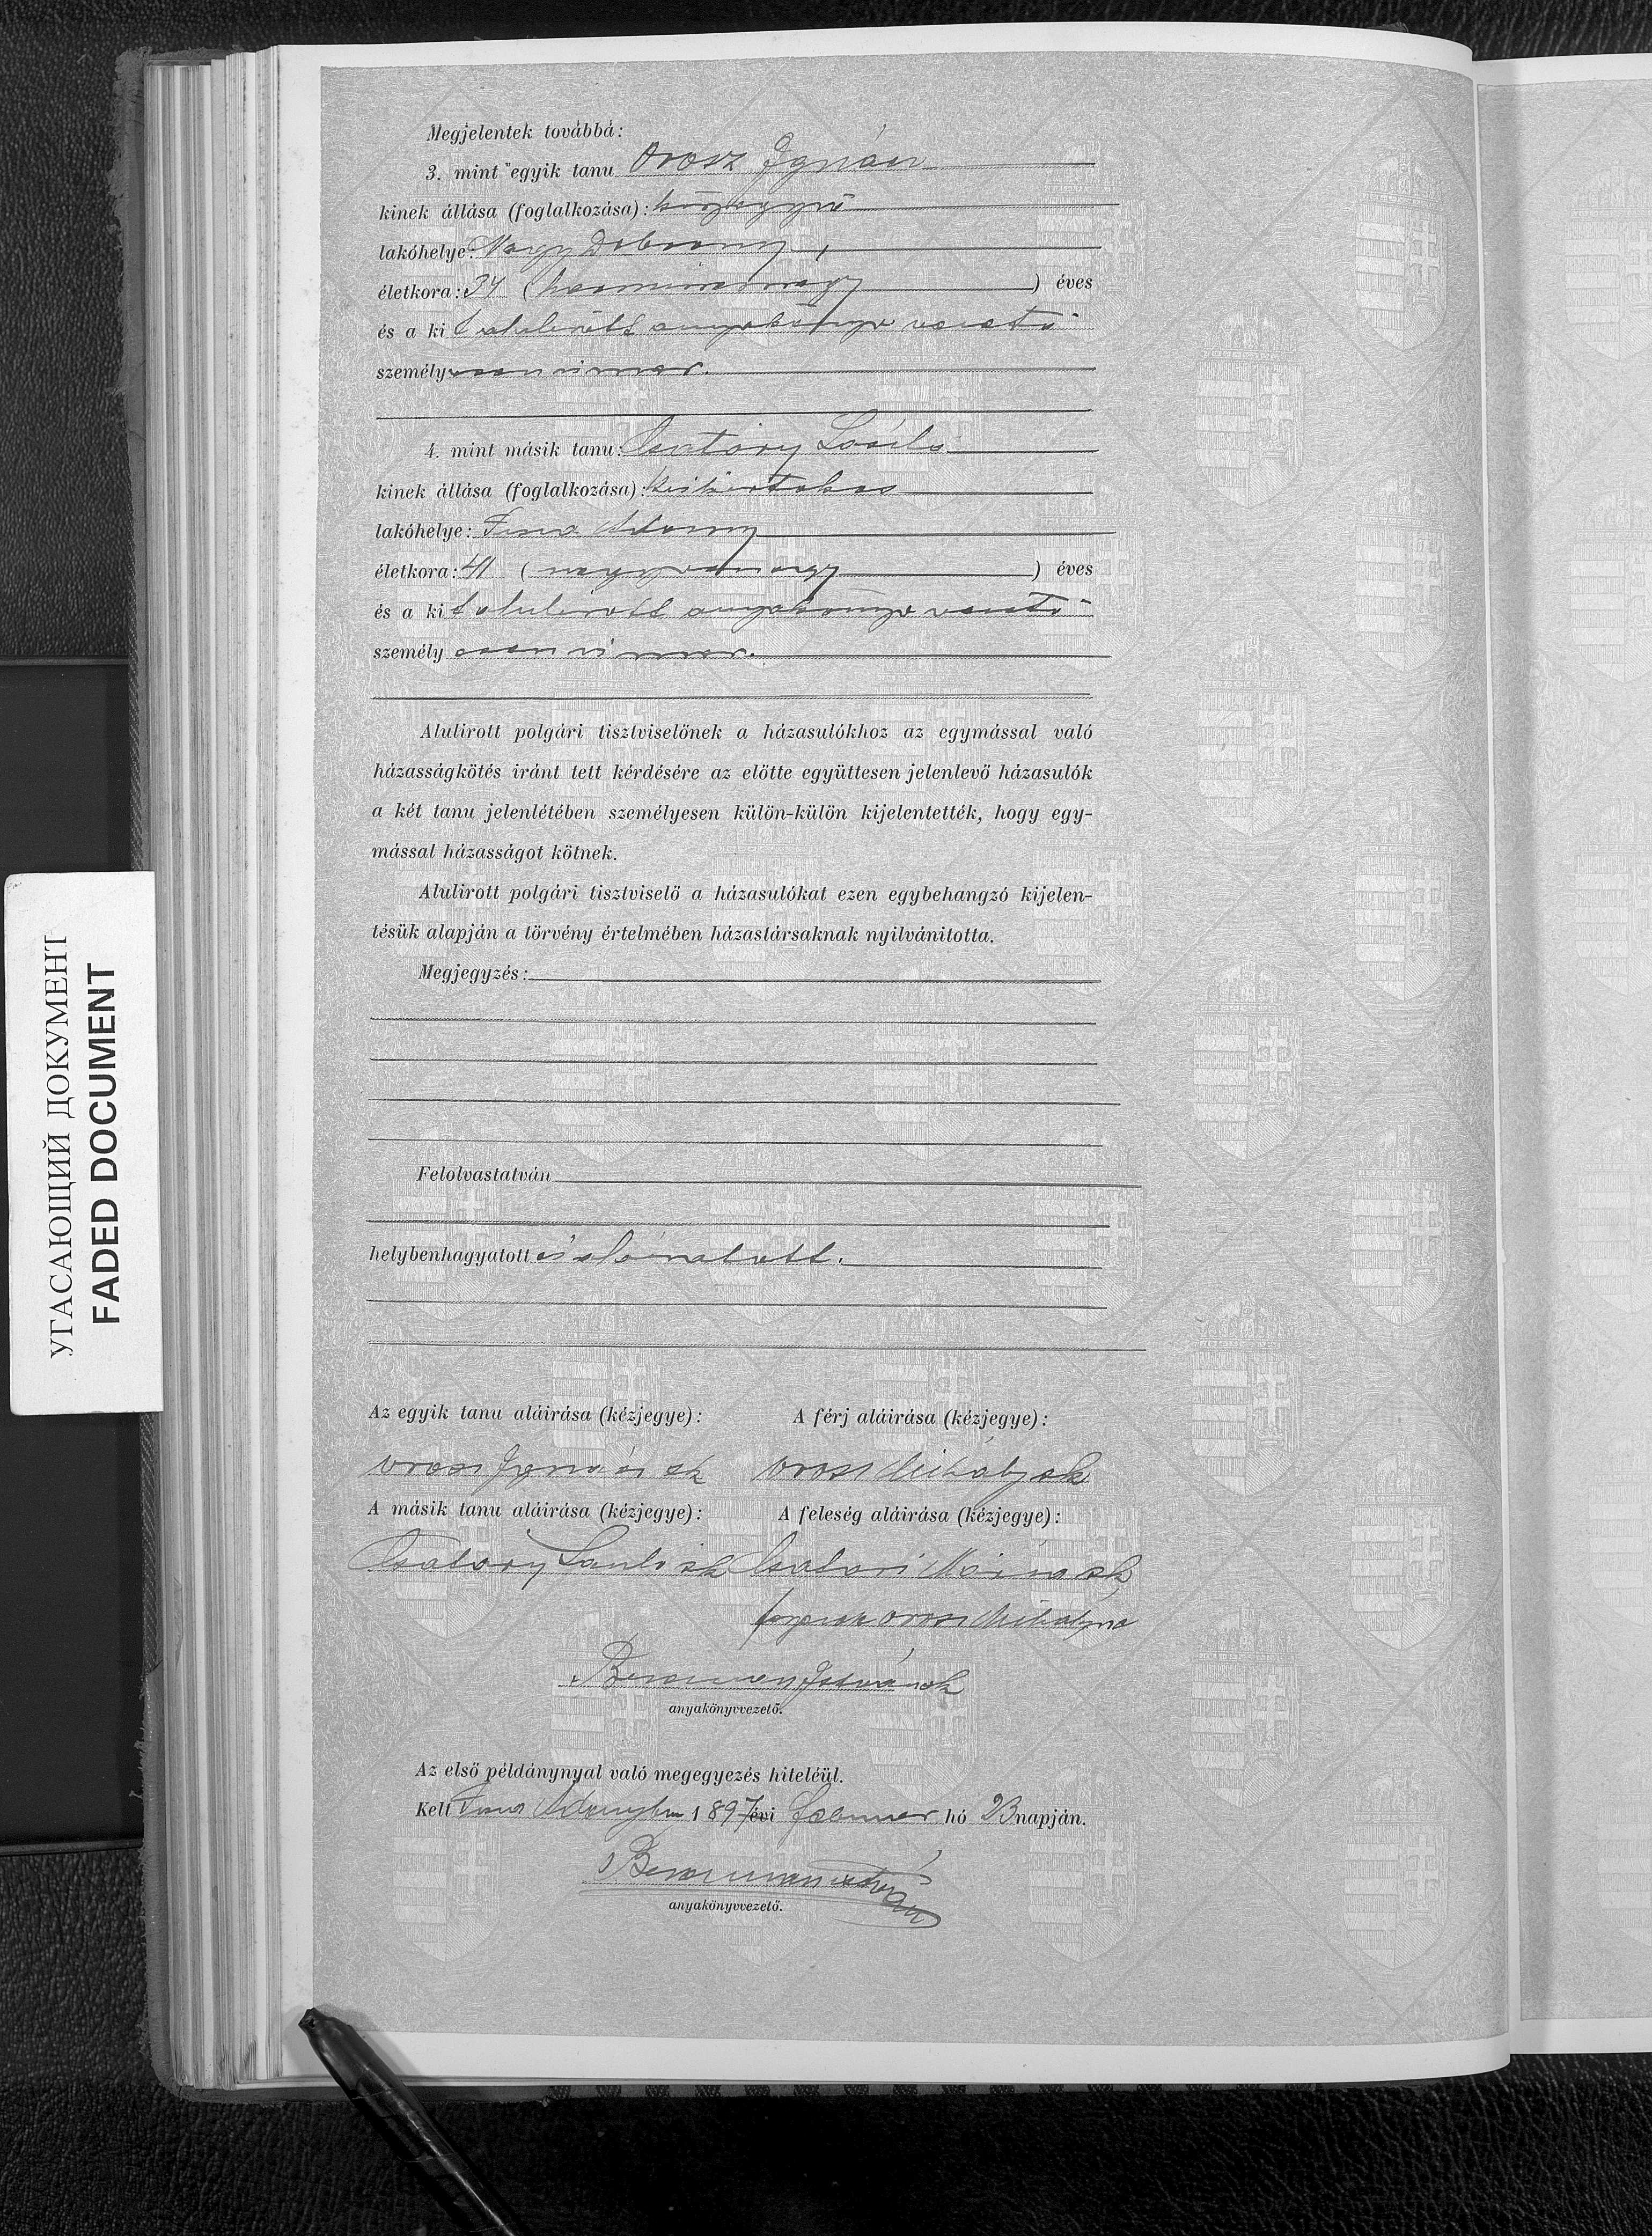 Megjelentek továbbá:
3. mint egyik tanu Orosz Ignácz
kinek állása (foglalkozása):
lakóhelye: Nagy Dobrony,
életkora: 34 (harmincznégy) éves
és a ki alulirott anyakönyv vezető
személyesen ismer.
4. mint másik tanu: Csatáry László
kinek állása (foglalkozása): kisbirtokos
lakóhelye: Tisza Adony
életkora: 41 (negyvenegy) éves
és a ki alulirott anyakönyv vezető
személyesen ismer.
Alulirott polgári tisztviselőnek a házasulókhoz az egymással való
házasságkötés iránt tett kérdésére az előtte együttesen jelenlevő házasulók
a két tanu jelenlétében személyesen külön-külön kijelentették, hogy egy-
mással házasságot kötnek.
Alulirott polgári tisztviselő a házasulókat ezen egybehangzó kijelen-
tésük alapján a törvény értelmében házastársaknak nyilvánitotta.
Megjegyzés:
Felolvastatván
helybenhagyatott és aláiratott.
Az egyik tanu aláirása (kézjegye): A férj aláirása (kézjegye):
Orosz Ignácz sk Orosz Mihály sk
A másik tanu aláirása (kézjegye): A feleség aláirása (kézjegye):
Csatáry László sk Csatári Mária sk
Orosz Mihályné
István sk
anyakönyvvezető.
Az első példánynyal való megegyezés hiteléül.
Kelt Tisza Adonyban 1897 évi Januar hó 23 napján.
István
anyakönyvvezető.
УГАСАЮЩИЙ ДОКУМЕНТ
FADED DOCUMENT